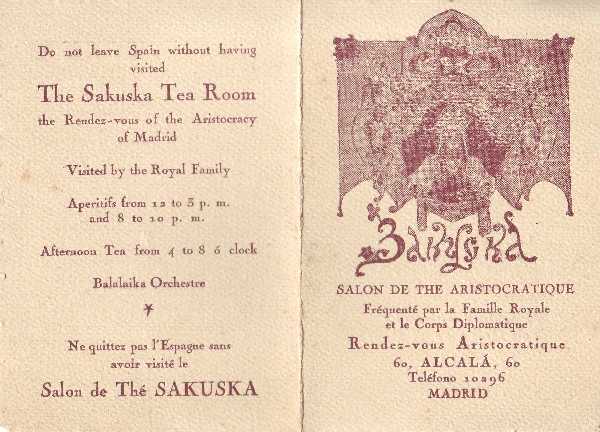 Do not leave Spain without having
visited
The Sakuska Tea Room
the Rendez-vous of the Aristocracy
of Madrid
Visited by the Royal Family
Aperitifs from 12 to 3 p. m.
and 8 to 10 p. m.
Afternoon Tea from 4 to 8 ó clock
Balalaika Orchestre
Ne quittez pas l'Espagne sans
avoir visité le
Salon de Thé SAKUSKA
Zakuska
SALON DE THE ARISTOCRATIQUE
Fréquenté par la Famille Royale
et le Corps Diplomatique
Rendez-vous Aristocratique
60, ALCALÁ, 60
Teléfono 10296
MADRID